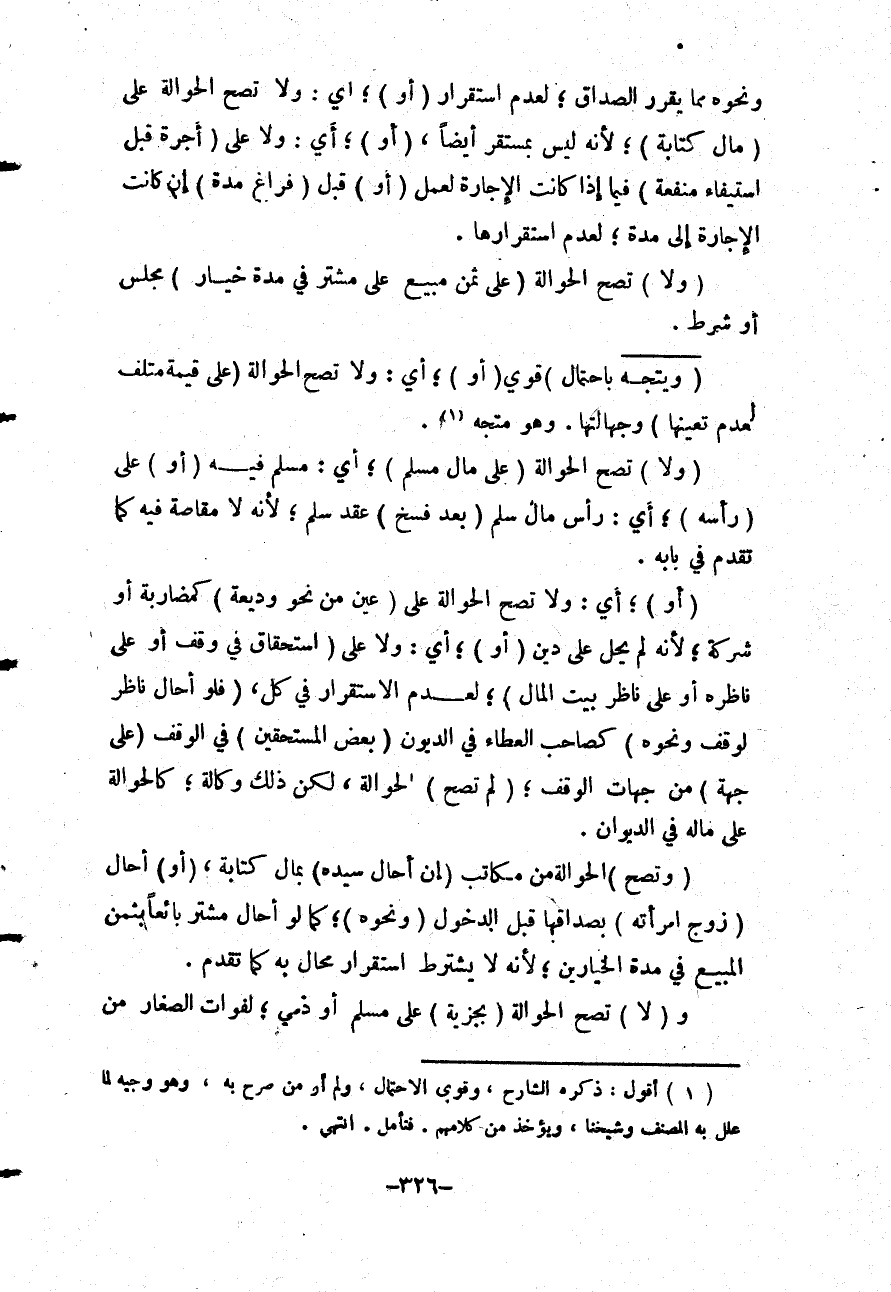 ونحوه مما يقرر الصداق ؛ لعدم استقرار ( أو ) ؛ اي : ولا تصح الحوالة على
( مال كتابة ) ؛ لأنه ليس بمستقر أيضاً ، ( أو ) ؛ أي : ولا على ( أجرة قبل
استيفاء منفعة ) فيما إذا كانت الإجارة لعمل ( أو ) قبل ( فراغ مدة ) إن كانت
الإجارة إلى مدة ؛ لعدم استقرارها .
( ولا ) تصح الحوالة ( على ثمن مبيع على مشتر في مدة خيار ) مجلس
أو شرط .
( ويتجه باحتمال ) قوي ( أو ) ؛ أي : ولا تصح الحوالة ( على قيمة متلف
لعدم تعينها ) وجهالتها . وهو متجه (١) .
( ولا ) تصح الحوالة ( على مال مسلم ) ؛ أي : مسلم فيه ( أو ) على
( رأسه ) ؛ أي : رأس مال سلم ( بعد فسخ ) عقد سلم ؛ لأنه لا مقاصة فيه كما
تقدم في بابه .
( أو ) ؛ أي : ولا تصح الحوالة على ( عين من نحو وديعة ) كمضاربة أو
شركة ؛ لأنه لم يحل على دين ( أو ) ؛ أي : ولا على ( استحقاق في وقف أو على
ناظره أو على ناظر بيت المال ) ؛ لعدم الاستقرار في كل ، ( فلو أحال ناظر
لوقف ونحوه ) كصاحب العطاء في الديون ( بعض المستحقين ) في الوقف ( على
جهة ) من جهات الوقف ؛ ( لم تصح ) الحوالة ، لكن ذلك وكالة ؛ كالحوالة
على ماله في الديوان .
( وتصح ) الحوالة من مكاتب ( إن أحال سيده ) بمال كتابة ، ( أو ) أحال
( زوج امرأته ) بصداقها قبل الدخول ( ونحوه ) ؛ كما لو أحال مشتر بائعاً بثمن
المبيع في مدة الخيارين ؛ لأنه لا يشترط استقرار محال به كما تقدم .
و ( لا ) تصح الحوالة ( بجزية ) على مسلم أو ذمي ؛ لفوات الصغار من
( ١ ) أقول : ذكره الشارح ، وقوى الاحتمال ، ولم أر من صرح به ، وهو وجيه لما
علل به المصنف وشيخنا ، ويؤخذ من كلامهم . فتأمل . انتهى .
–٣٢٦–